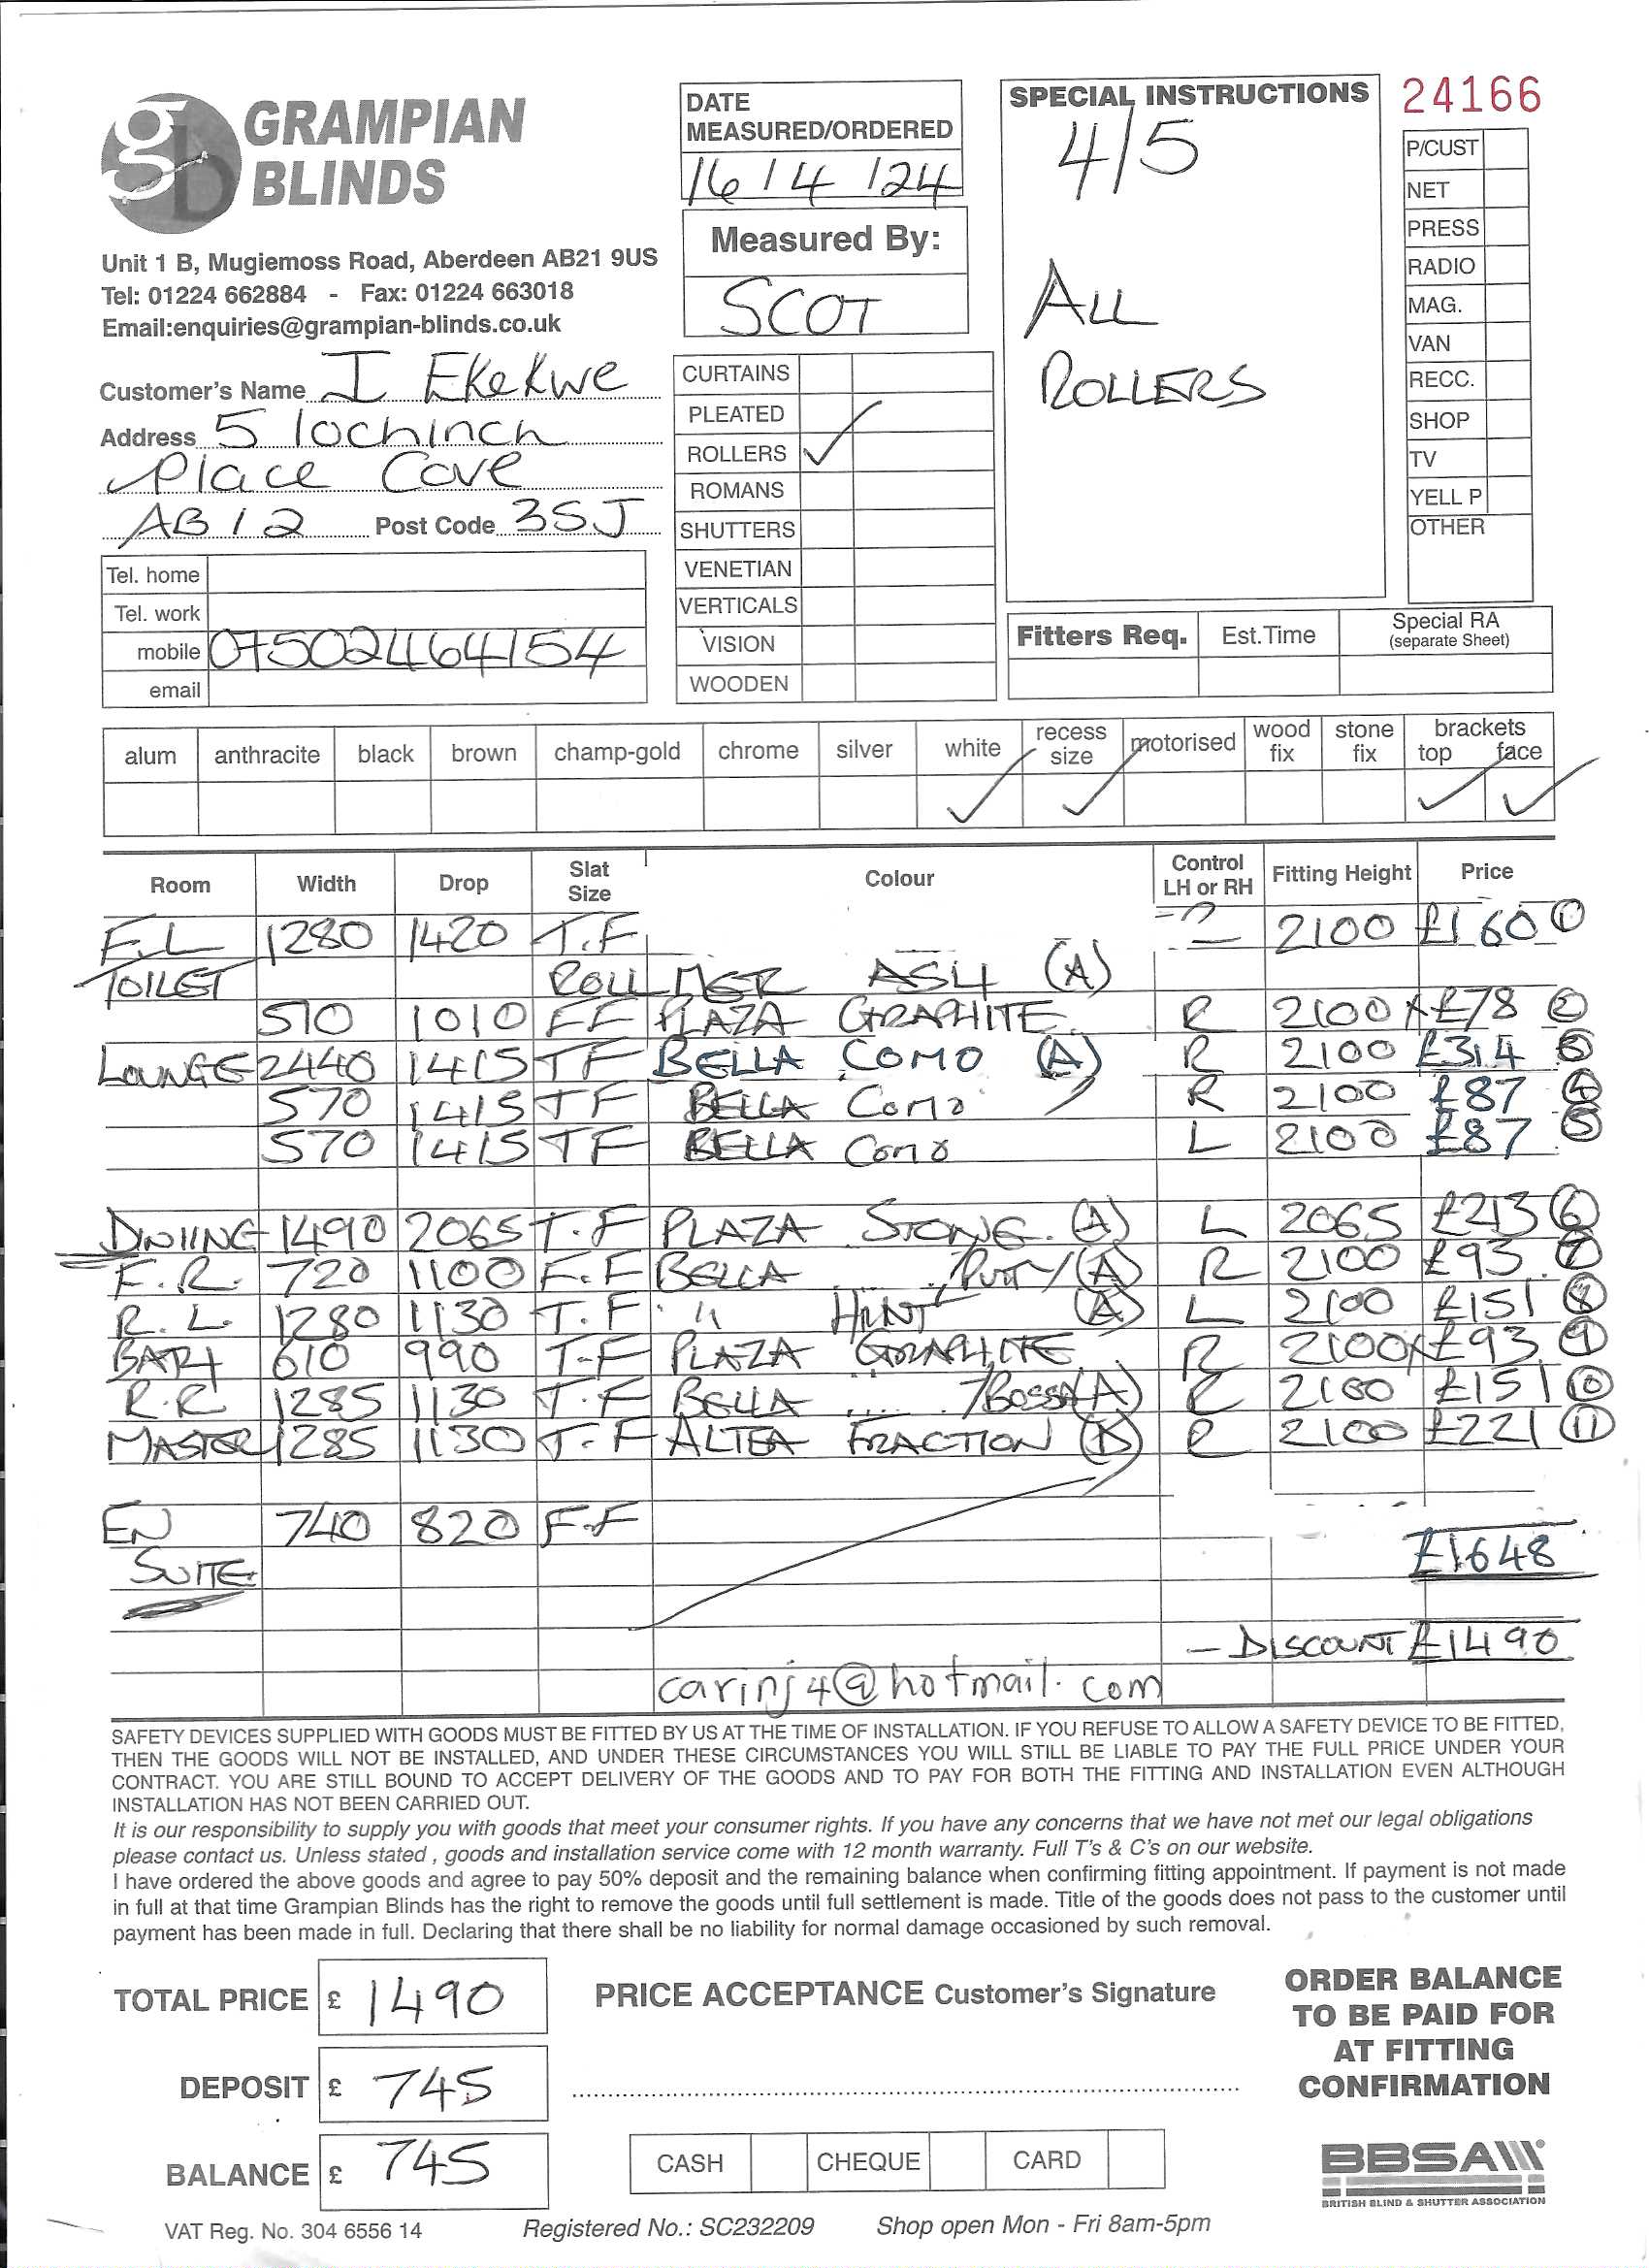 GRAMPIAN
BLINDS
Unit 1 B, Mugiemoss Road, Aberdeen AB21 9US
Tel: 01224 662884 - Fax: 01224 663018
Email:enquiries@grampian-blinds.co.uk
Customer's Name I Ekekwe
Address 5 lochinch
Place Cove
AB12 Post Code 3SJ
Tel. home
Tel. work
mobile 07502464154
email
DATE
MEASURED/ORDERED
16/4/24
Measured By:
SCOT
CURTAINS
PLEATED
ROLLERS ✓
ROMANS
SHUTTERS
VENETIAN
VERTICALS
VISION
WOODEN
SPECIAL INSTRUCTIONS
4/5
ALL
ROLLERS
24166
P/CUST
NET
PRESS
RADIO
MAG.
VAN
RECC.
SHOP
TV
YELL P
OTHER
Fitters Req. Est.Time Special RA
(separate Sheet)
alum anthracite black brown champ-gold chrome silver white recess size motorised wood fix stone fix brackets top face
✓ ✓ ✓ ✓
Room Width Drop Slat Size Colour Control LH or RH Fitting Height Price
F.L 1280 1420 T.F 2100 £160 ①
TOILET ASH (A)
510 1010 FF PLAZA GRAPHITE R 2100 £78 ②
LOUNGE 2440 1415 TF BELLA COMO (A) R 2100 £314 ③
570 1415 TF BELLA COMO R 2100 £87 ④
570 1415 TF BELLA COMO L 2100 £87 ⑤
DINIING 1490 2065 T.F PLAZA STONE. (A) L 2065 £213 ⑥
F.R. 720 1100 F.F BELLA PUTTY (A) R 2100 £93 ⑦
R.L. 1280 1130 T.F " (A) L 2100 £151 ⑧
BATH 610 990 T-F PLAZA GRAPHITE R 2100 £93 ⑨
R.R 1285 1130 T.F BELLA (A) R 2100 £151 ⑩
MASTER 1285 1130 T.F ALTEA FRACTION R 2100 £221 ⑪
EN 740 820 F.F
SUITE
£1648
- DISCOUNT £1490
carinj4@hotmail.com
SAFETY DEVICES SUPPLIED WITH GOODS MUST BE FITTED BY US AT THE TIME OF INSTALLATION. IF YOU REFUSE TO ALLOW A SAFETY DEVICE TO BE FITTED,
THEN THE GOODS WILL NOT BE INSTALLED, AND UNDER THESE CIRCUMSTANCES YOU WILL STILL BE LIABLE TO PAY THE FULL PRICE UNDER YOUR
CONTRACT. YOU ARE STILL BOUND TO ACCEPT DELIVERY OF THE GOODS AND TO PAY FOR BOTH THE FITTING AND INSTALLATION EVEN ALTHOUGH
INSTALLATION HAS NOT BEEN CARRIED OUT.
It is our responsibility to supply you with goods that meet your consumer rights. If you have any concerns that we have not met our legal obligations
please contact us. Unless stated , goods and installation service come with 12 month warranty. Full T's & C's on our website.
I have ordered the above goods and agree to pay 50% deposit and the remaining balance when confirming fitting appointment. If payment is not made
in full at that time Grampian Blinds has the right to remove the goods until full settlement is made. Title of the goods does not pass to the customer until
payment has been made in full. Declaring that there shall be no liability for normal damage occasioned by such removal.
TOTAL PRICE £ 1490
DEPOSIT £ 745
BALANCE £ 745
PRICE ACCEPTANCE Customer's Signature
CASH CHEQUE CARD
ORDER BALANCE
TO BE PAID FOR
AT FITTING
CONFIRMATION
BBSA
BRITISH BLIND & SHUTTER ASSOCIATION
VAT Reg. No. 304 6556 14 Registered No.: SC232209 Shop open Mon - Fri 8am-5pm